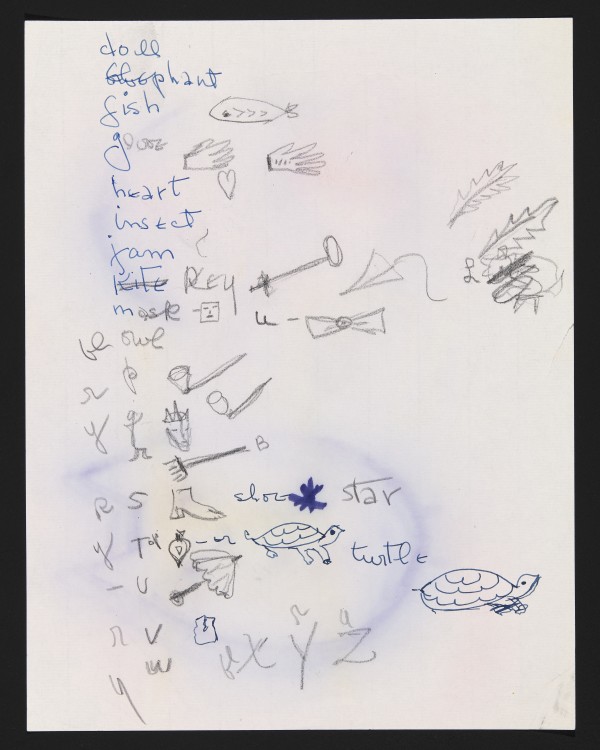 doll
elephant
fish
glove
heart
insect
jam
kite Key L
mask U
owl
r p
y q
r B
R S shoe star
y T or turtle
- U
r V r a
w X Y Z
y